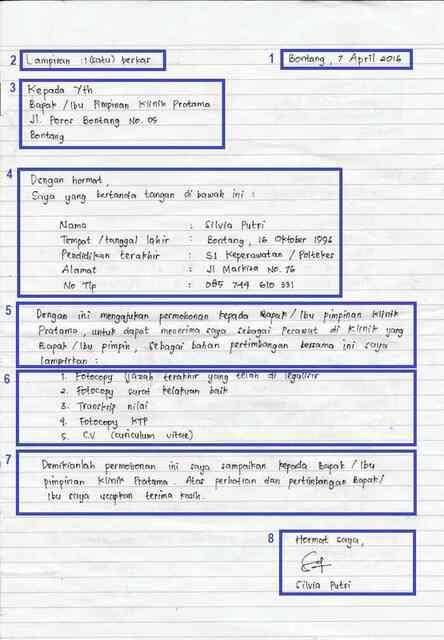 2 Lampiran : 1 (satu) berkas
1 Bontang, 7 April 2016
3 Kepada Yth
Bapak / Ibu Pimpinan Klinik Pratama
Jl. Poros Bontang No. 05
Bontang
4 Dengan hormat,
Saya yang bertanda tangan di bawah ini :
Nama : Silvia Putri
Tempat / tanggal lahir : Bontang, 16 Oktober 1996
Pendidikan terakhir : S1 Keperawatan / Poltekes
Alamat : Jl Markisa No. 76
No Tlp : 085 744 610 331
5 Dengan ini mengajukan permohonan kepada Bapak / Ibu pimpinan Klinik
Pratama, untuk dapat menerima saya sebagai Perawat di Klinik yang
Bapak / Ibu pimpin, Sebagai bahan pertimbangan bersama ini saya
lampirkan :
6 1. Fotocopy Ijazah terakhir yang telah di legalisir
2. Fotocopy surat kelakuan baik
3. Transkip nilai
4. Fotocopy KTP
5. CV (curiculum vitae)
7 Demikianlah permohonan ini saya sampaikan kepada Bapak / Ibu
pimpinan Klinik Pratama. Atas perhatian dan pertimbangan Bapak /
Ibu saya ucapkan terima kasih.
8 Hormat saya,
Silvia Putri